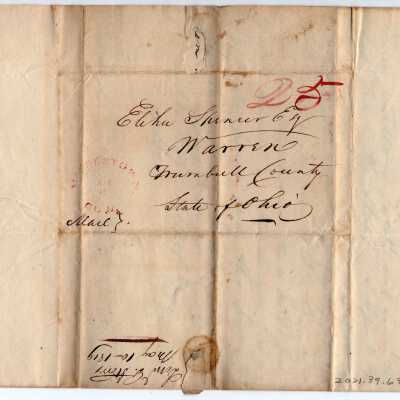 25
Elihu Spencer Esq
Warren
Trumbull County
State of Ohio
Mail
May 10 1819
2021.39.63